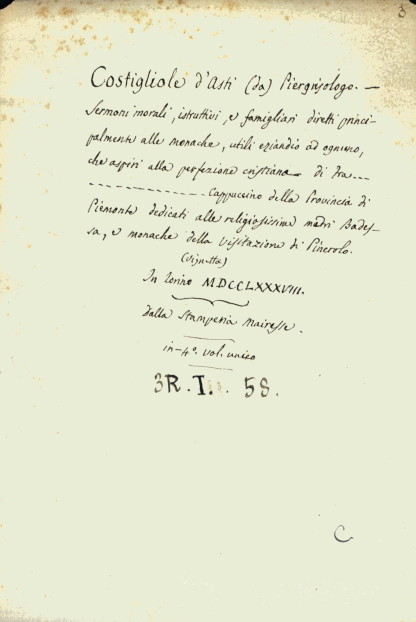 3
Costigliole d'Asti (da) Piergrisologo. —
Sermoni morali, istruttivi, e famigliari diretti princi-
palmente alle monache, utili eziandio ad ognuno,
che aspiri alla perfezione cristiana — di fra ---
- - - - - - - - - - - - Cappuccino della Provincia di
Piemonte dedicati alle religiosissime madri Bades-
sa, e monache della visitazione di Pinerolo.
(vignetta)
In Torino MDCCLXXXVIII.
Dalla Stamperia Mairesse.
in-4°. vol. unico
3R. I. 58.
C